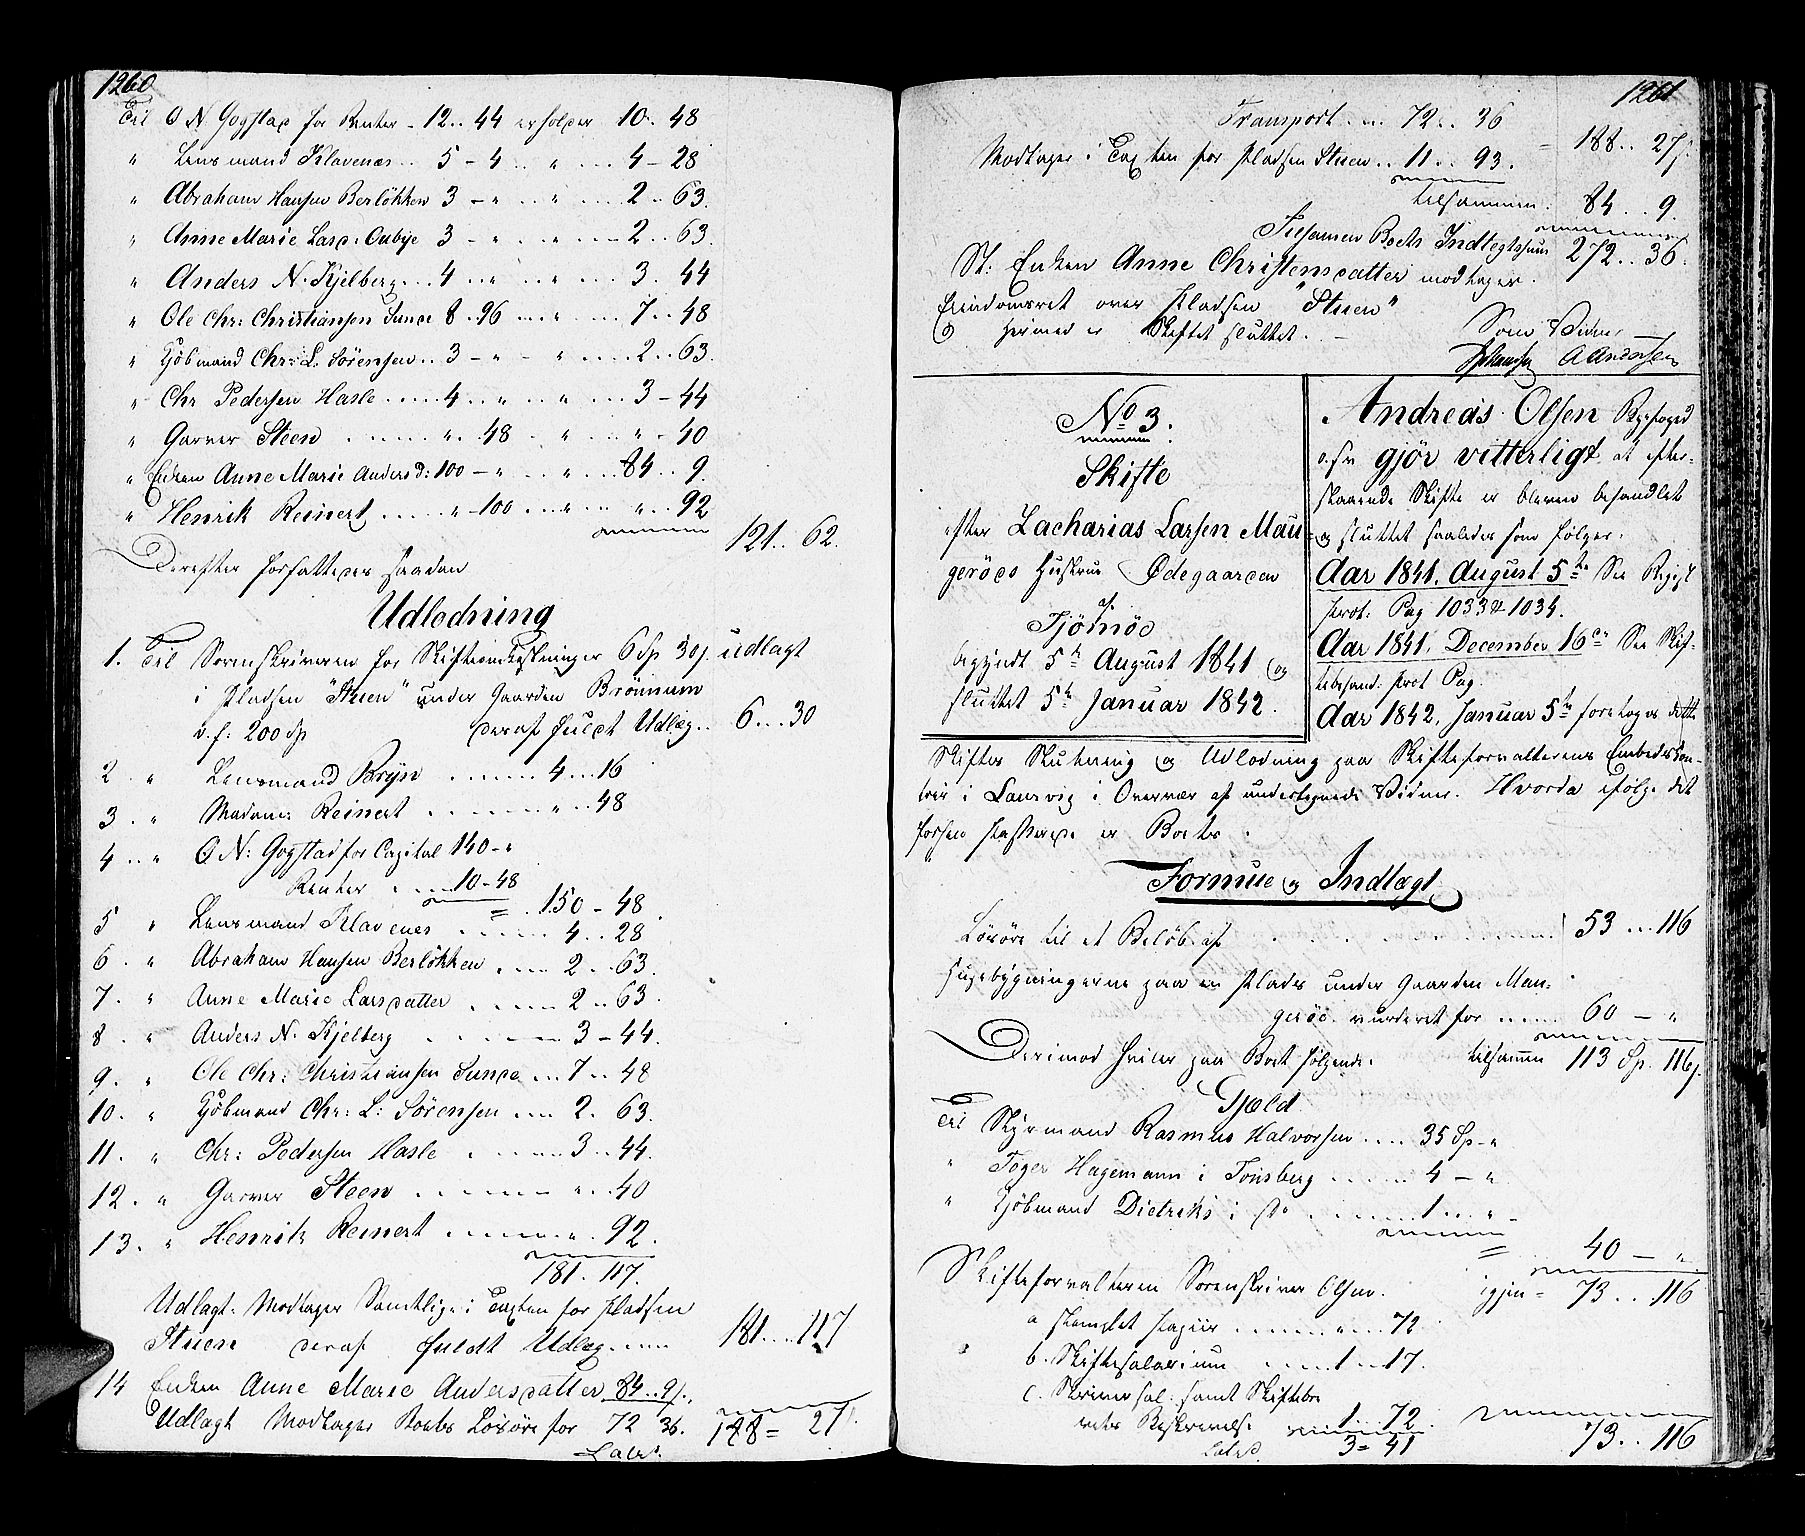 1260
Til O N. Gogstad for Renter - 12.. 44 erholder 10.. 48
" Lensmand Klavenæs.. 5 - 4 .. " .... 4 - 28
" Abraham Hansen Berlökken 3 - " .. " .... 2 .. 63.
" Anne Marie Larsd: Oubye 3 - " .. " .... 2 .. 63.
" Anders N. Kjelberg.... 4 .. " .. " .... 3. 44
" Ole Chr: Christiansen Sunde 8. 96 ... " .... 7 .. 48
" Kjöbmand Chr: L: Sörensen.. 3 - " - " .... 2 .. 63.
" Chr Pedersen Hasle ..... 4 .. " .. " .... 3 - 44
" Garver Steen ...... ". 48 .. " ... " - 40
" Enken Anne Marie Andersd: 100 - " ... " .... 84 .. 9.
" Henrik Reinert ..... " - 100 ... " .. " .. 92
121.. 62.
Derefter forfattedes saadan
Udlodning
1. Til Sorenskriveren for Skifteomkostninger 6 Sp 30 s. udlagt
i Pladsen "Stuen" under Gaarden Brönnum
v. f: 200 Sp deraf fuldt Udlæg.. 6... 30
2 . " Lensmand Bryn ...... 4 ... 16
3 . " Madame Reinert ....... " ... 48
4 .. " O N: Gogstad for Capital 140 - "
Renter .... 10 - 48
= . 150 - 48.
5 " Lensmand Klavenes ...... 4 .. 28
6 . " Abraham Hansen Berlökken .... 2 .. 63.
7 . " Anne Marie Larsdatter ..... 2 .. 63.
8 . " Anders N. Kjelberg ...... 3 - 44.
9 . " Ole Chr: Christiansen Sunde ... 7 .. 48
10 . " Kjöbmand Chr: L: Sörensen .... 2. 63.
11 . " Chr: Pedersen Hasle ...... 3 .. 44.
12 . " Garver Steen ....... " ... 40
13 . " Henrik Reinert ....... " .. 92.
181. 117.
Udlagt. Modtager Samtlige i Taxten for Pladsen
Stuen deraf fuldt Udlæg..... 181....117
14 Enken Anne Marie Andersdatter 84 .. 9 s.
Udlagt Modtager Boets Lösöre for 72 36. 188 = 27.
Lateris.
1261
Transport .... 72.. 36
188.. 27 s.
Modtager i Taxten for Pladsen Stuen.. 11.. 93.
tilsammen. 84.. 9.
Tilsamen Boets Indtegtssum 272.. 36.
St: Enken Anne Christensdatter modtager
Eiendomsret over Pladsen "Stuen"
og hermed er Skiftet sluttet. -
Som Vidner
Johansen A Andersen
No 3.
Skifte
efter Zacharias Larsen Mau-
geröes Hustrue Ödegaarden
af
Tjömöe
begyndt 5te August 1841 og
sluttet 5te Januar 1842.
Andreas Olsen Byefoged
o. s. v. gjör vitterligt at efter-
staaende Skifte er bleven behandlet
og sluttet saaledes som fölger.
Aar 1841. August 5te See Regist
prot: Pag 1033 & 1034.
Aar 1841. December 16de See Skif-
tebehand: Prot Pag.
Aar 1842. Januar 5te foretoges dette
Skiftes Slutning og Udlodning paa Skifteforvalterens Embedscon-
toir i Laurvig i Overvær af undertegnede Vidner. Hvorda ifölge det
forhen passerede er Boets.
Formue og Indtægt
Lösöre til et Belöb af .............. 53... 116
Husebygningerne paa en Plads under Gaarden Mau-
geröe. vurderet for ..... 60 - "
Derimod hviler paa Boet fölgende. tilsammen 113 Sp. 116 s.
Gjæld
Til Styrmand Rasmus Halvorsen .... 35 Sp - "
" Foger Hagemann i Tönsberg ...... 4 - "
" Kjöbmand Dietriks i do ....... 1 ... "
= 40 - "
Skifteforvalteren Sorenskriver Olsen. igjen = 73.. 116
a Stemplet Papiir ....... " ... 72
b. Skiftesalarium ..... 1 .. 17.
c. Skriversal: samt Skiftebre
vets Beskrivelse ..... 1.. 72.
Laterd 3 = 41
73.. 116